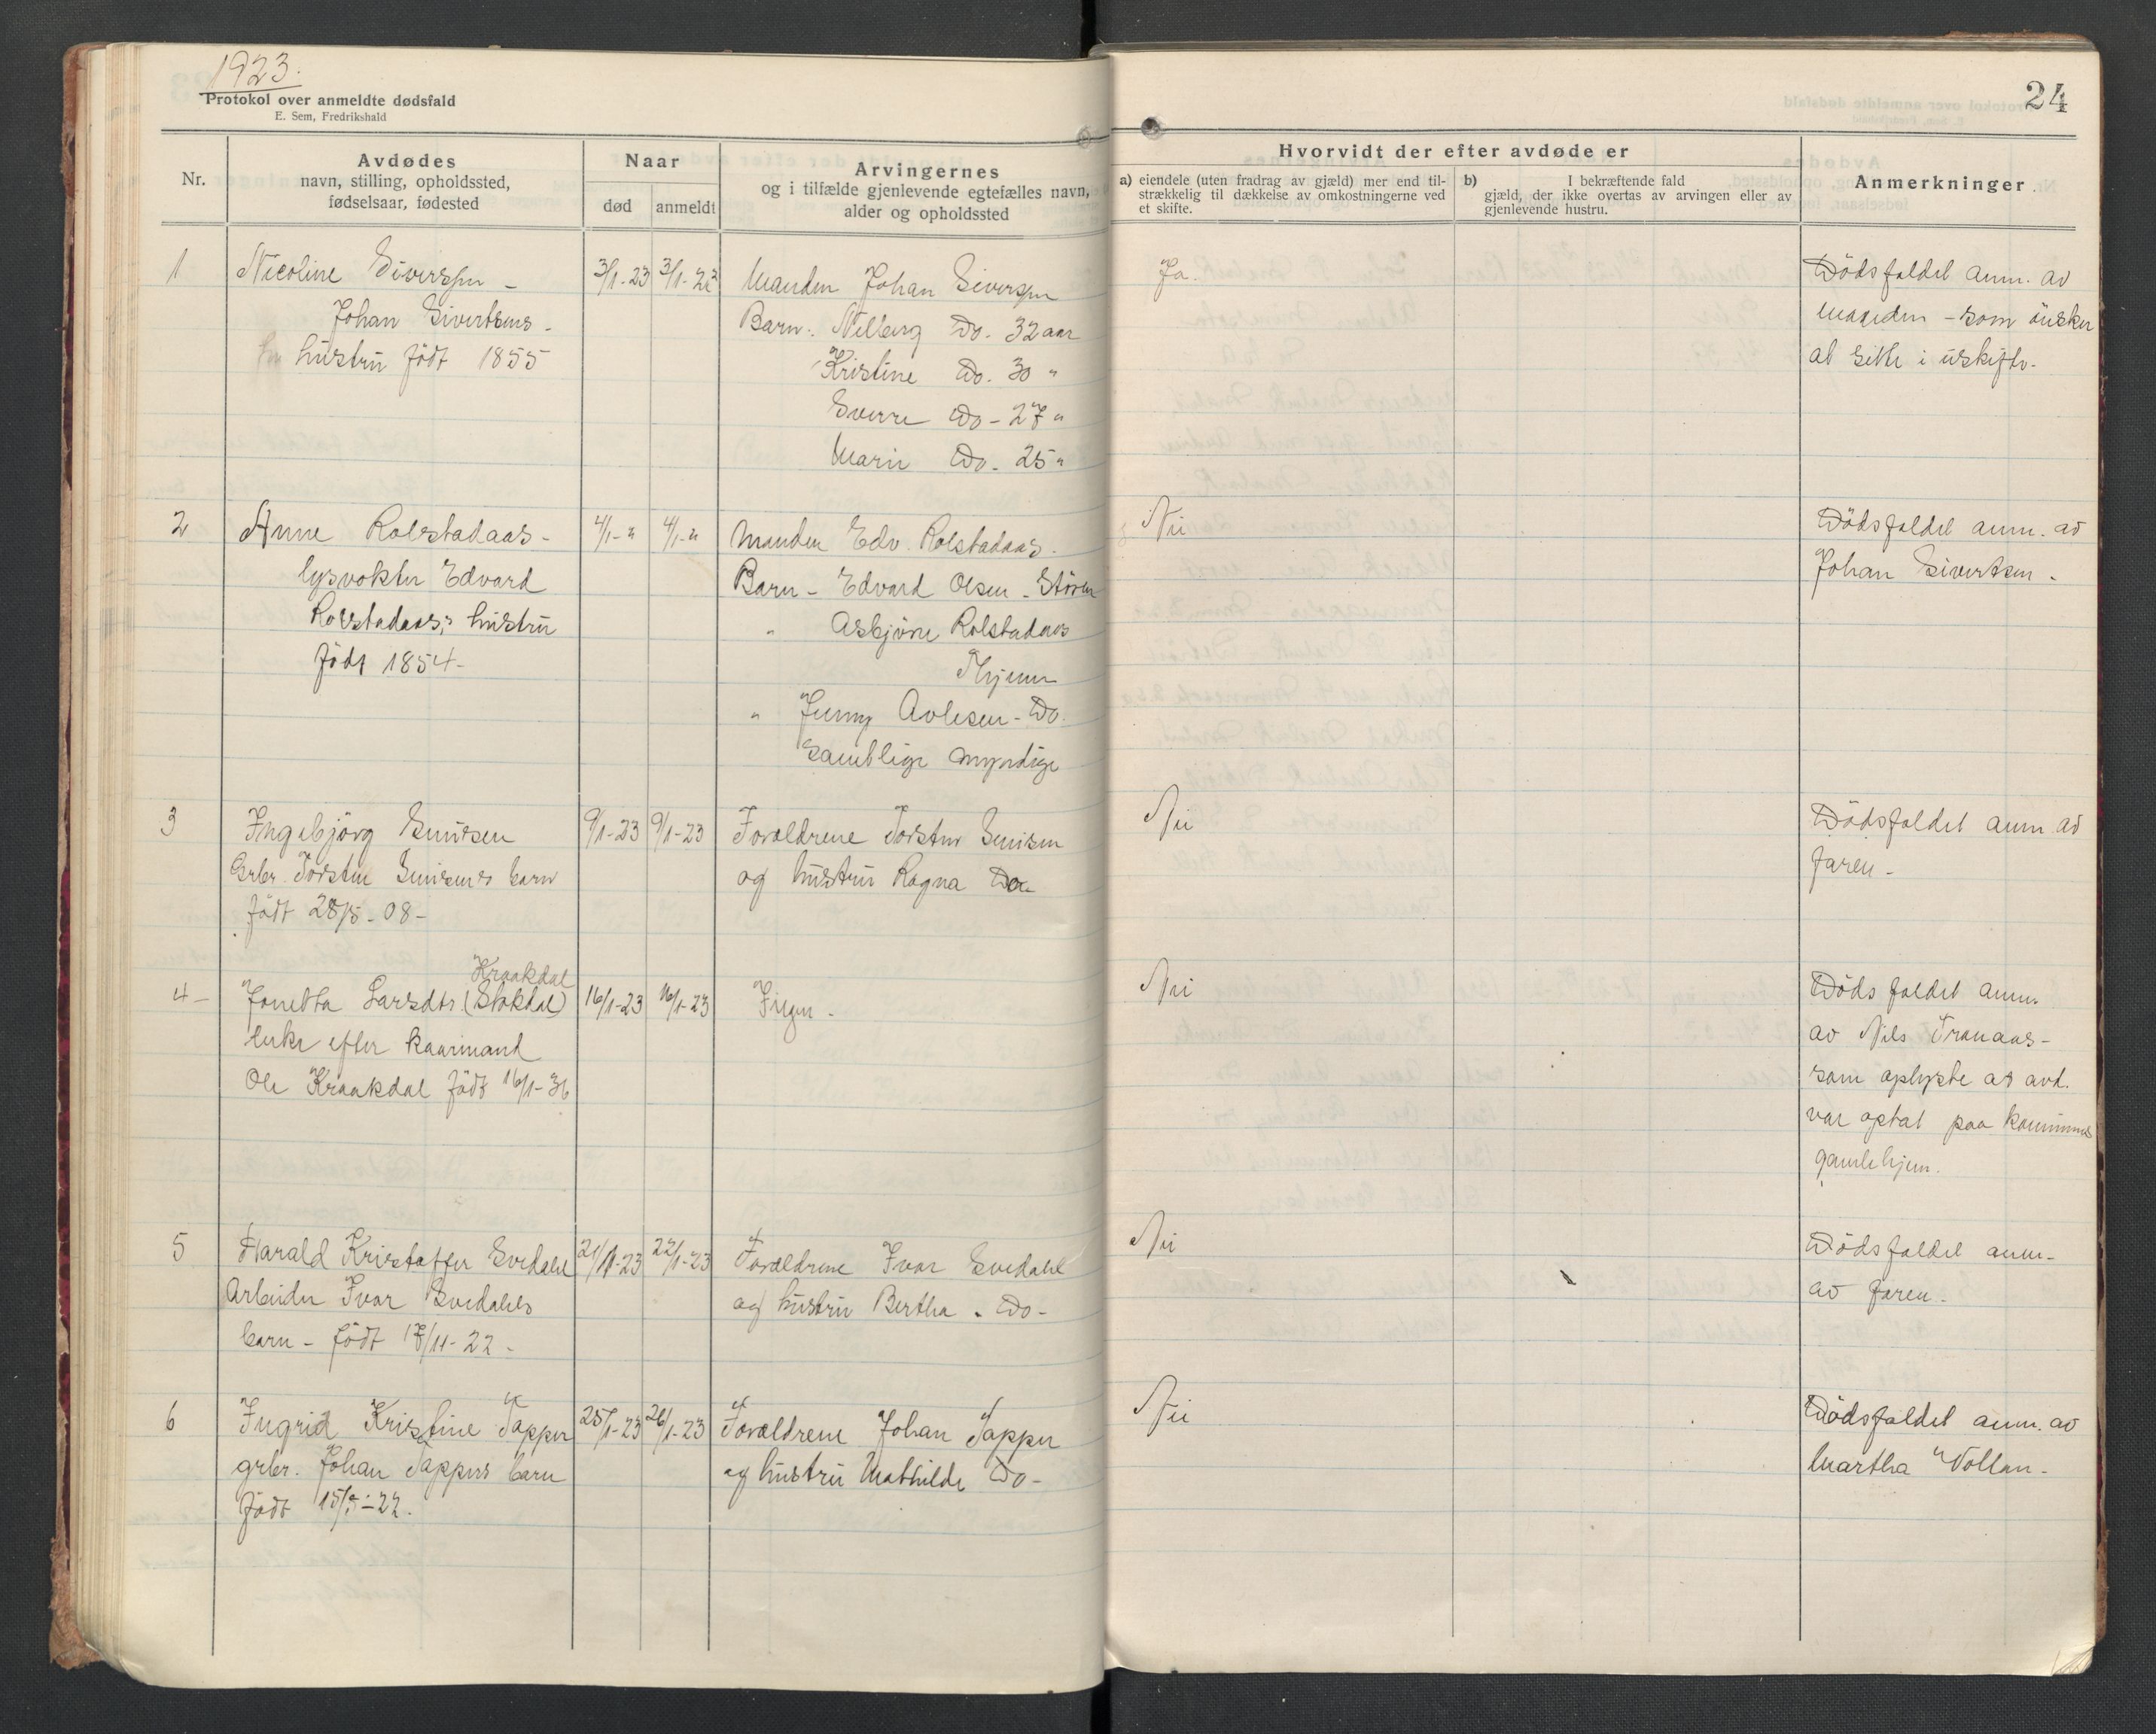 1923.
Protokol over anmeldte dødsfald
E. Sem, Fredrikshald
24
Nr.
Avdødes
navn, stilling, opholdssted,
fødselsaar, fødested
Naar
død
anmeldt
Arvingernes
og i tilfælde gjenlevende egtefælles navn,
alder og opholdssted
Hvorvidt der efter avdøde er
a) eiendele (uten fradrag av gjæld) mer end til-
strækkelig til dækkelse av omkostningerne ved
et skifte.
b) I bekræftende fald
gjæld, der ikke overtas av arvingen eller av
gjenlevende hustru.
Anmerkninger
1
Nicoline Siversen -
Johan Sivertsens -
hustru født 1855
3/1-23
3/1-23
Manden Johan Siversen
Barn: Do. 32 aar
Kristine Do. 30 "
Sverre Do - 27 "
Marie Do. 25 "
Ja.
Dödsfaldet anm. av
manden - som önsker
at sitte i uskifte.
2
Anne Rolstadaas -
lysvokter Edvard
Rolstadaas's hustru
födt 1854-
4/1-"
4/1-"
Manden Edv. Rolstadaas.
Barn - Edvard Olsen - Stören
" Asbjörn Rolstadaas
Thjem
" Jenny Avlesen - Do.
Samtlige myndige
Nei
Dödsfaldet anm. av
Johan Sivertsen.
3
Ingebjörg Enuisen
Grbr. Torsten barn
födt 28/5-08-
9/1-23
9/1-23
Forældrene Torsten
og hustru Ragna Do
Nei
Dödsfaldet anm av
faren -
4-
Kraakdal
Jonetta Larsdtr. (Stokdal)
enke efter kaarmand
Ole Kraakdal födt 16/1-36
16/1-23
16/1-23
Ingen.
Nei
Dödsfaldet anm.
av Nils Tranaas-
som oplyste at avd.
var optat paa kommunens
gamlehjem.
5
Harald Kristoffer Svedahl
Arbeider Ivar Svedahls
barn - födt 17/11-22.
21/1-23
22/1-23
Forældrene Ivar Svedahl
og hustru Bertha. Do-
Nei
Dödsfaldet anm-
av faren.
6
Ingrid Kristine Tapper
grbr. Johan Tappers barn
födt 15/ -22.
25/1-23
26/1-23
Forældrene Johan Tapper
og hustru Mathilde Do-
Nei
Dödsfaldet anm. av
Martha Vollan-